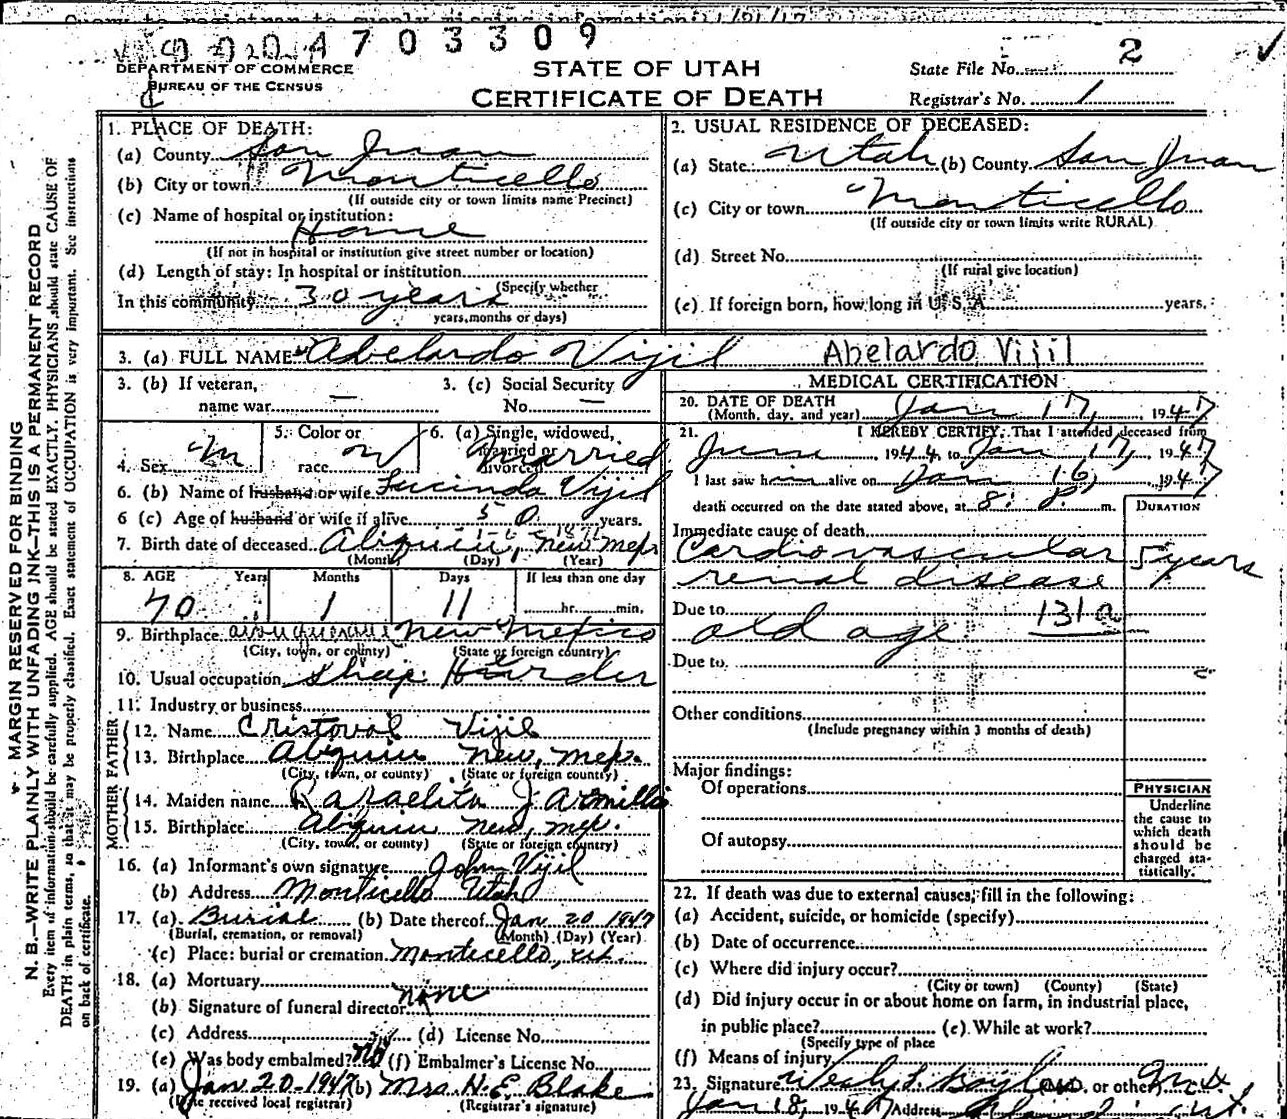 Query to registrar to supply missing information 1/21/17
4703309
DEPARTMENT OF COMMERCE
BUREAU OF THE CENSUS
STATE OF UTAH
CERTIFICATE OF DEATH
State File No. 2
Registrar's No. 1
MARGIN RESERVED FOR BINDING
N. B.—WRITE PLAINLY WITH UNFADING INK—THIS IS A PERMANENT RECORD
Every item of information should be carefully supplied. AGE should be stated EXACTLY. PHYSICIANS should state CAUSE OF
DEATH in plain terms, so that it may be properly classified. Exact statement of OCCUPATION is very important. See instructions
on back of certificate.
1. PLACE OF DEATH:
(a) County San Juan
(b) City or town Monticello
(If outside city or town limits name Precinct)
(c) Name of hospital or institution:
Home
(If not in hospital or institution give street number or location)
(d) Length of stay: In hospital or institution
(Specify whether
In this community 30 years
years, months or days)
2. USUAL RESIDENCE OF DECEASED:
(a) State Utah (b) County San Juan
(c) City or town Monticello
(If outside city or town limits write RURAL)
(d) Street No.
(If rural give location)
(e) If foreign born, how long in U. S. A. years.
3. (a) FULL NAME Abelardo Vijil Abelardo Vijil
3. (b) If veteran,
name war —
3. (c) Social Security
No. —
4. Sex M
5. Color or
race W
6. (a) Single, widowed,
married or
divorced Married
6. (b) Name of husband or wife Lucinda Vijil
6 (c) Age of husband or wife if alive 50 years.
7. Birth date of deceased Abiquiu, New Mex
(Month) (Day) (Year)
8. AGE Years Months Days If less than one day
70 1 11 hr. min.
9. Birthplace New Mexico
(City, town, or county) (State or foreign country)
10. Usual occupation Sheep Harder
11. Industry or business
FATHER
12. Name Cristoval Vijil
13. Birthplace Abiquiu New, Mex.
(City, town, or county) (State or foreign country)
MOTHER
14. Maiden name Rafaelita Jarmillo
15. Birthplace Abiquiu New, Mex.
(City, town, or county) (State or foreign country)
16. (a) Informant's own signature John Vijil
(b) Address Monticello Utah
17. (a) Burial (b) Date thereof Jan 20 1947
(Burial, cremation, or removal) (Month) (Day) (Year)
(c) Place: burial or cremation Monticello, Ut.
18. (a) Mortuary
(b) Signature of funeral director none
(c) Address (d) License No.
(e) Was body embalmed? no (f) Embalmer's License No.
19. (a) Jan 20-1947 (b) Mrs. H. E. Blake
(Date received local registrar) (Registrar's signature)
MEDICAL CERTIFICATION
20. DATE OF DEATH
(Month, day, and year) Jan 17, 1947
21. I HEREBY CERTIFY, That I attended deceased from
June, 1944, to Jan 17, 1947
I last saw him alive on Jan 16, 1947
death occurred on the date stated above, at 8: P. m.
DURATION
Immediate cause of death
Cardiovascular 5 years
renal disease
Due to 131a
old age
Due to
Other conditions
(Include pregnancy within 3 months of death)
Major findings:
Of operations
Of autopsy
PHYSICIAN
Underline
the cause to
which death
should be
charged sta-
tistically.
22. If death was due to external causes, fill in the following:
(a) Accident, suicide, or homicide (specify)
(b) Date of occurrence
(c) Where did injury occur?
(City or town) (County) (State)
(d) Did injury occur in or about home on farm, in industrial place,
in public place? (e) While at work?
(Specify type of place
(f) Means of injury
23. Signature or other
Jan 18, 1947 Address